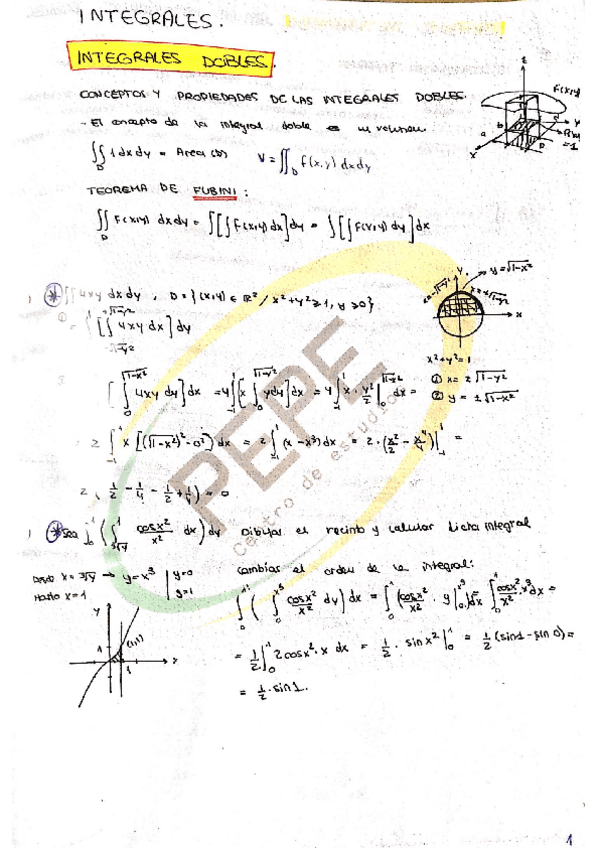 INTEGRALES.
INTEGRALES DOBLES.
CONCEPTOS Y PROPIEDADES DE LAS INTEGRALES DOBLES.
- El concepto de la integral doble es un volumen.
∬_D 1 dx dy = Area (D)   V = ∬_D f(x,y) dx dy
TEOREMA DE FUBINI:
∬_D F(x,y) dx dy = ∫[∫F(x,y) dx]dy = ∫[∫F(x,y) dy]dx
* ∬ 4xy dx dy, D = {(x,y) ∈ ℝ² / x²+y² ≥ 1, y ≥ 0}
① = ∫[∫ 4xy dx] dy
y=√1-x²
x²+y²=1
① x = ±√1-y²
② y = ±√1-x²
∫[∫₀^√1-x² 4xy dy]dx = 4∫₋₁¹[x∫₀^√1-y² y dy]dx = 4∫₋₁¹ x · y²/2 |^√1-y² dx =
2∫₋₁¹ x[(√1-x²)² - 0²] dx = 2∫₋₁¹ (x - x³) dx = 2·(x²/2 - x⁴/4)|₋₁¹ =
2( 1/2 - 1/4 - 1/2 + 1/4 ) = 0
* Sea ∫₀¹ (∫_³√y^1 cosx²/x² dx) dy Dibujar el recinto y calcular dicha integral
Desde x = ³√y → y = x³ | y=0
Hasta x = 1 | y=1
cambiar el orden de la integral:
∫₀¹ (∫₀^x³ cosx²/x² dy) dx = ∫₀¹ (cosx²/x² · y|₀^x³) dx ∫₀¹ cosx²/x² · x³ dx =
= 1/2 |₀¹ 2cosx² · x dx = 1/2 · sin x² |₀¹ = 1/2 (sin1 - sin 0) =
= 1/2 · sin 1.
(1,1)
PEPE
Centro de estudios
1